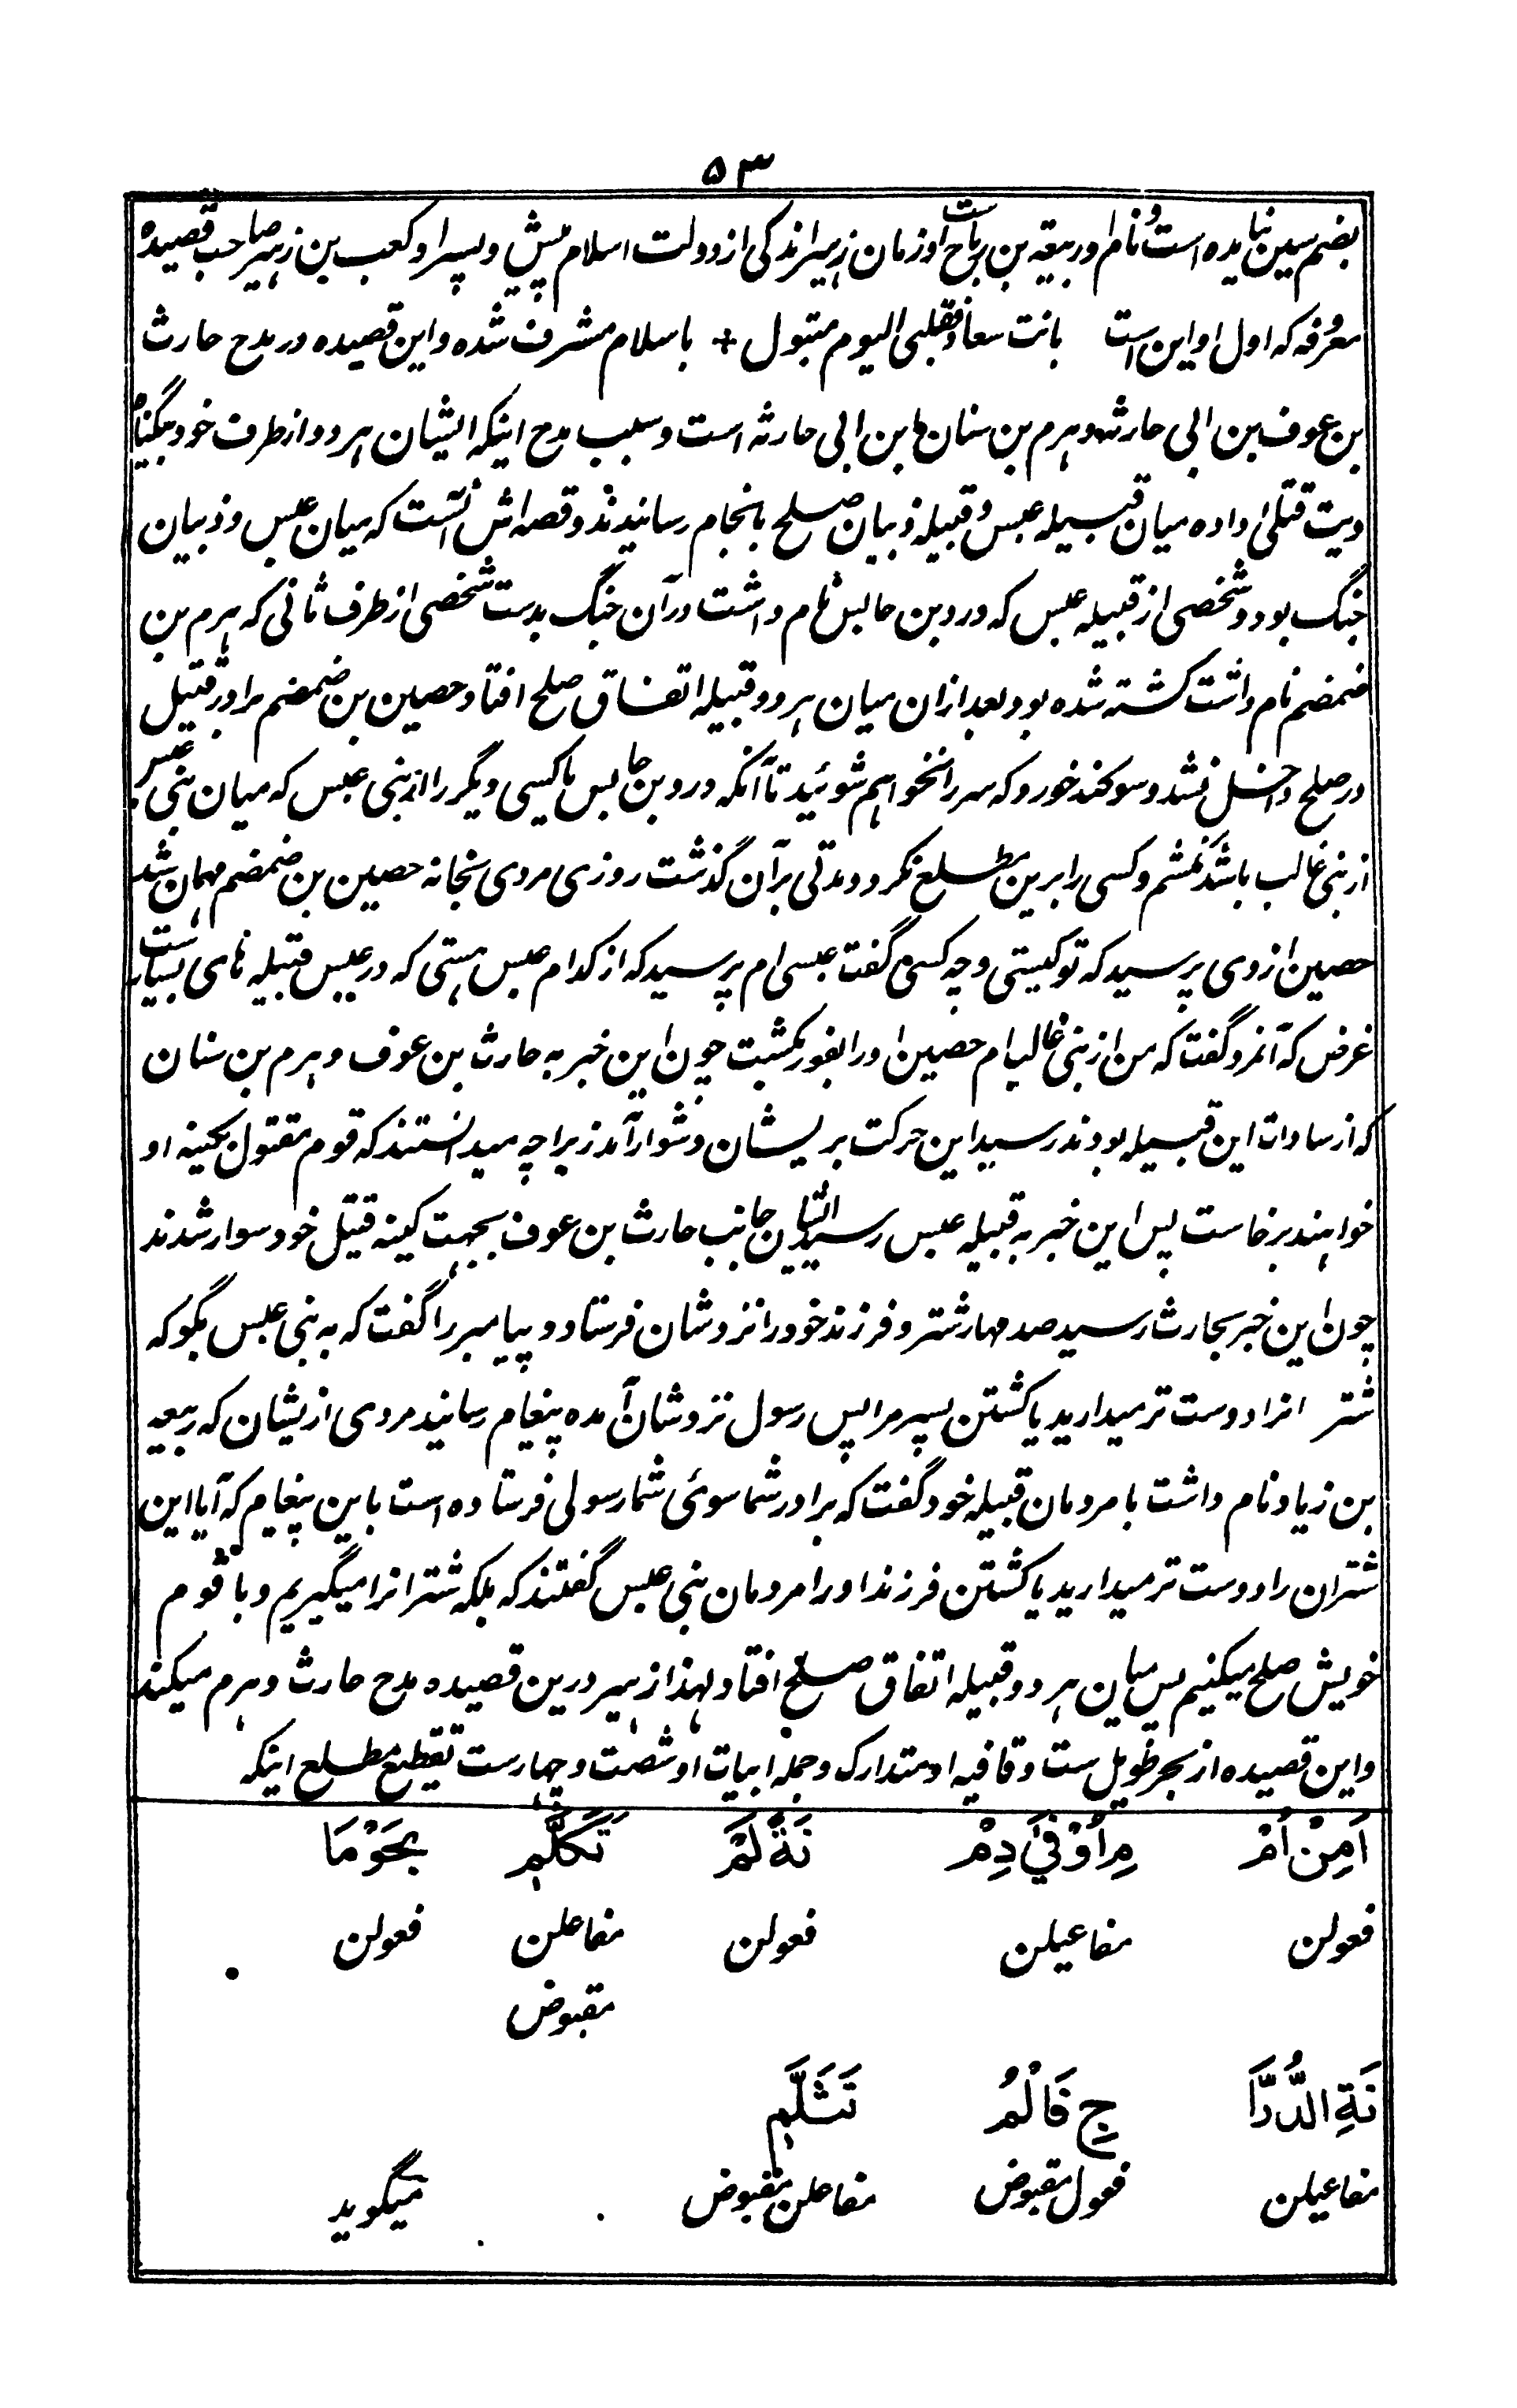 ۵۳
بضم سین نیامده است و نام او ربیعه بن رباح است و زمان زهیر اندکی از دولت اسلام پیش و پسر او کعب بن زهیر صاحب قصیده
معروفه که اول او این است بانت سعاد فقلبی الیوم متبول + باسلام مشرف شده و این قصیده در مدح حارث
بن عوف بن ابی حارثه و هرم بن سنان بن ابی حارثه است و سبب مدح اینکه ایشان هر دو از طرف خود بیگناه
دیت قتلی داده میان قبیله عبس و قبیله ذبیان صلح بانجام رسانیدند و قصه اش آنست که میان عبس و ذبیان
جنگ بود و شخصی از قبیله عبس که ورد بن حابس نام داشت در آن جنگ بدست شخصی از طرف ثانی که هرم بن
ضمضم نام داشت کشته شده بود بعد ازان میان هر دو قبیله اتفاق صلح افتاد حصین بن ضمضم برادر قتیل
در صلح داخل نشد و سوگند خورد که سر را نخواهم شوئید تا آنکه ورد بن حابس یا کسی دیگر را از بنی عبس که میان بنی عبس
از بنی غالب باشد نکشم و کسی را برین مطلع نکرد و مدتی برآن گذشت روزی مردی بخانه حصین بن ضمضم مهمان شد
حصین از وی پرسید که تو کیستی و چه کسی گفت عبسی ام پرسید که از کدام عبس هستی که در عبس قبیله های بسیار است
غرض که آنمرد گفت که من از بنی غالب ام حصین او را بفور بکشت چون این خبر به حارث بن عوف و هرم بن سنان
که از سادات این قبیله بودند رسید این حرکت بر یشان دشوار آمد زیرا چه میدانستند که قوم مقتول بکینه او
خواهند برخاست پس این خبر به قبیله عبس رسید ایشان جانب حارث بن عوف بجهت کینه قتیل خود سوار شدند
چون این خبر بحارث رسید صد مهار شتر و فرزند خود را نزد شان فرستاد و پیامبر را گفت که به بنی عبس بگو که
شتر انرا دوست تر میدارید یا کشتن پسر مرا پس رسول نزد شان آمده پیغام رسانید مردی ازیشان که ربیعه
بن زیاد نام داشت با مردمان قبیله خود گفت که برادر شما سوئی شما رسولی فرستاده است باین پیغام که آیا این
شتران را دوست تر میدارید یا کشتن فرزند او را مردمان بنی عبس گفتند که بلکه شتر انرا میگیریم و با قوم
خویش صلح میکنیم پس میان هر دو قبیله اتفاق صلح افتاد لهذا زهیر درین قصیده مدح حارث و هرم میکند
و این قصیده از بحر طویل ست و قافیه او متدارک و جمله ابیات او شصت و چهار ست تقطیع مطلع اینکه
اَمِنْ اُمْ مِ اَوْفَیٰ دِمْ نَةٌ لَمْ تَکَلَّمِ بِحَوْمَا
فعولن مفاعیلن فعولن مفاعلن فعولن
مقبوض
نَةِ الدُّرَّا جِ فَالْمُ تَثَلَّمِ
مفاعیلن فعول مقبوض مفاعلن مقبوض میگوید